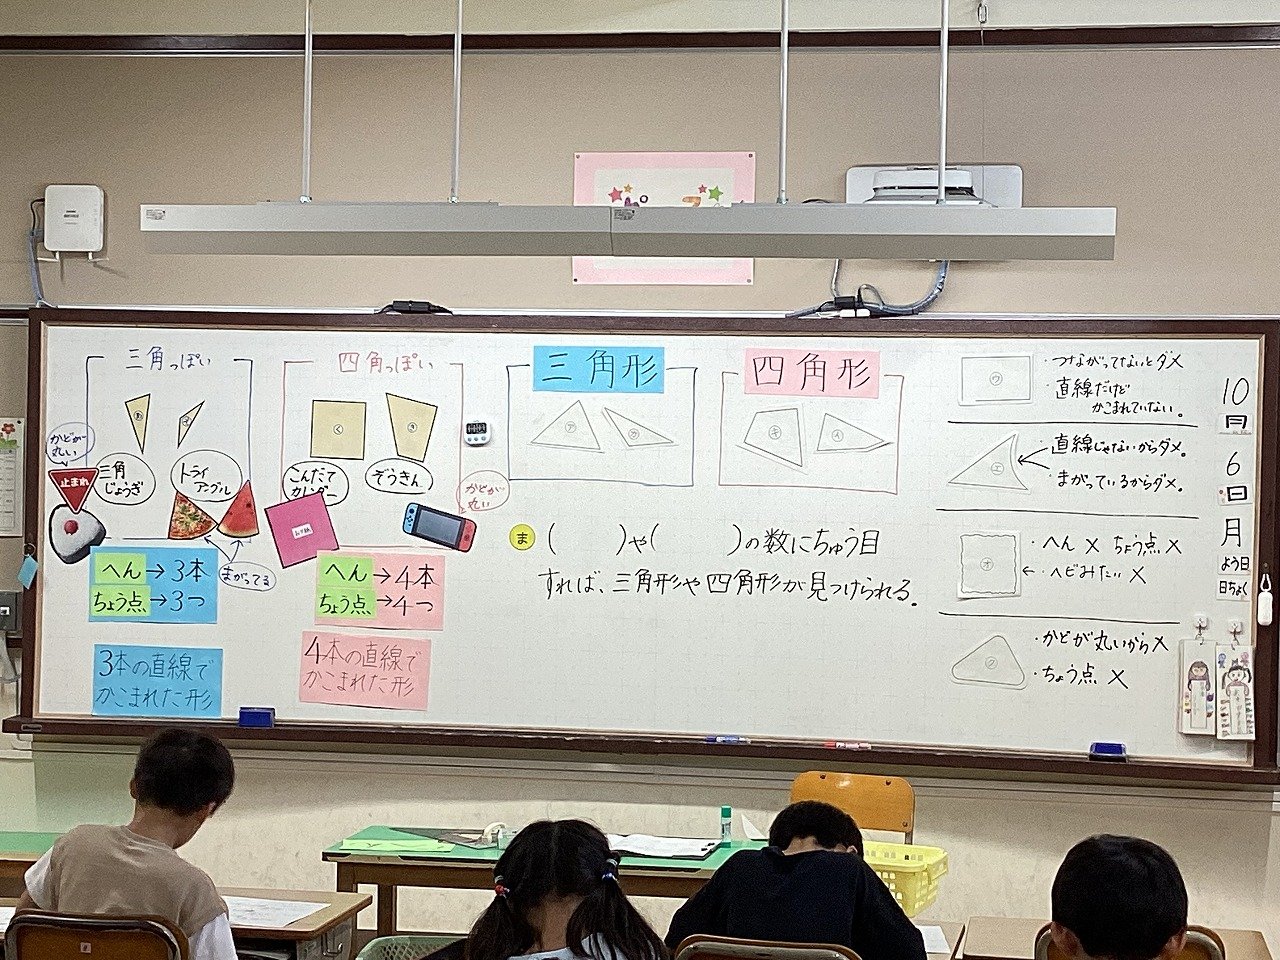 三角っぽい
かどが
丸い
止まれ
三角
じょうぎ
トライ
アングル
まがってる
へん→3本
ちょう点→3つ
3本の直線で
かこまれた形
四角っぽい
く
こんだて
カレンダー
ぞうきん
かどが
丸い
へん→4本
ちょう点→4つ
4本の直線で
かこまれた形
三角形
ア
ケ
四角形
キ
イ
ま
(　　)や(　　)の数にちゅう目
すれば、三角形や四角形が見つけられる。
ウ
・つながってないとダメ
・直線だけど
かこまれていない。
エ
・直線じゃないからダメ。
・まがっているからダメ。
オ
・へん× ちょう点×
・ヘビみたい×
ク
・かどが丸いから×
・ちょう点×
10
月
6
日
月
よう日
日ちょく